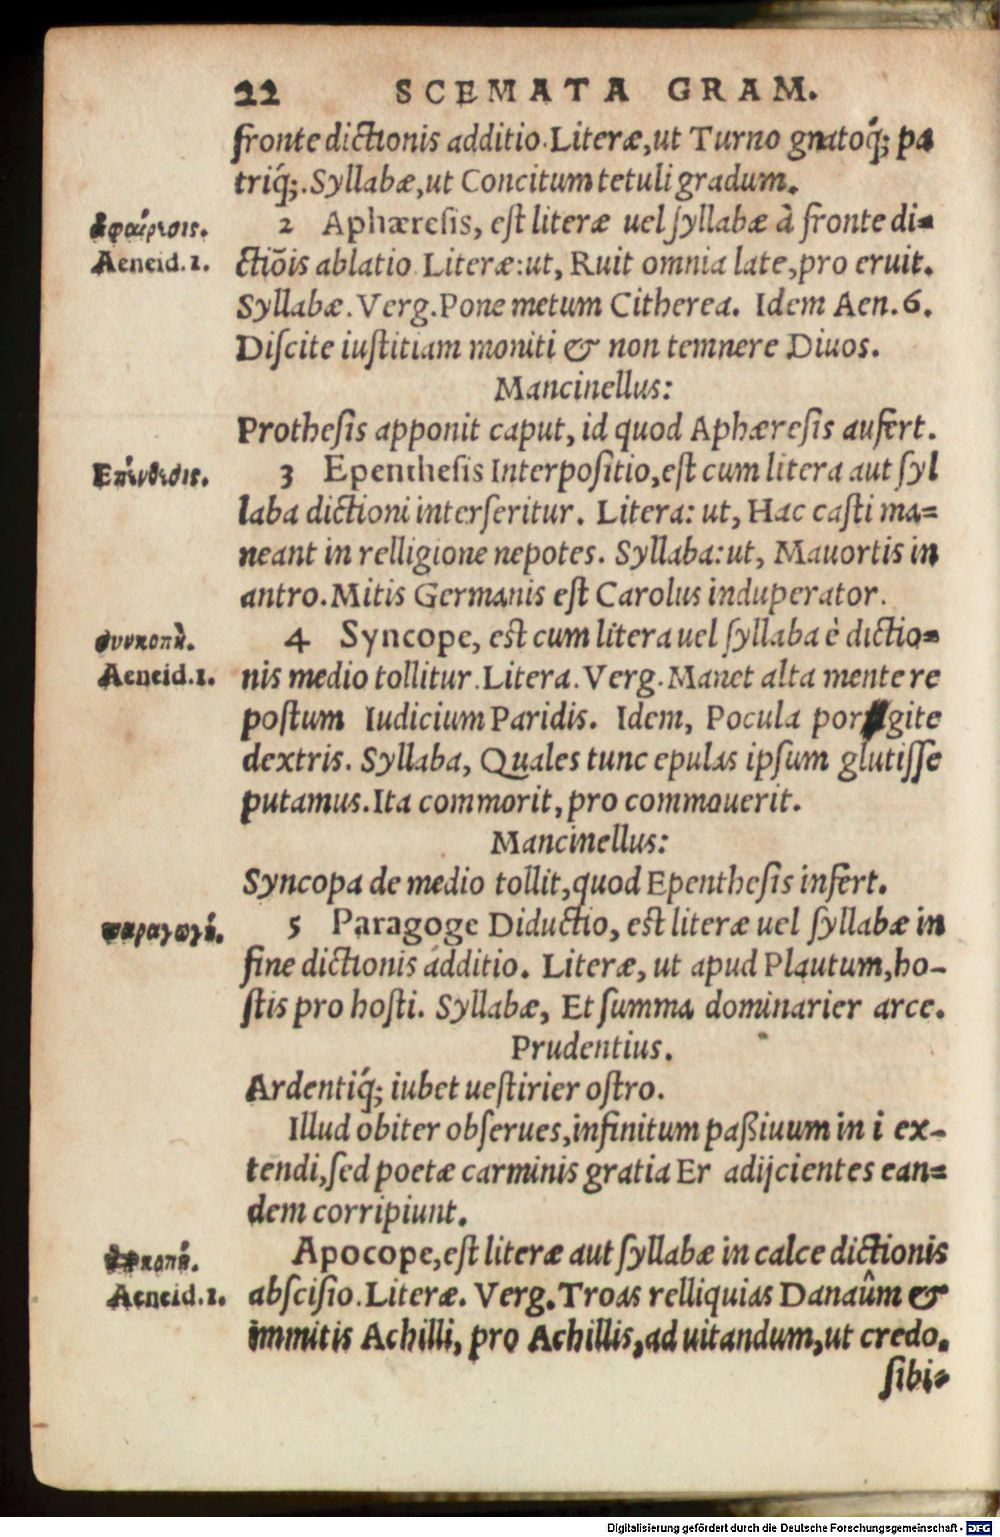 22 SCEMATA GRAM.
fronte dictionis additio. Literæ, ut Turno gnatoq́; pa
triq́;. Syllabæ, ut Concitum tetuli gradum.
ἀφαίρισις.
2 Aphæresis, est literæ uel syllabæ à fronte di=
Aeneid.1.
ctiōis ablatio. Literæ: ut, Ruit omnia late, pro eruit.
Syllabæ. Verg. Pone metum Citherea. Idem Aen. 6.
Discite iustitiam moniti & non temnere Diuos.
Mancinellus:
Prothesis apponit caput, id quod Aphæresis aufert.
Επένθεσις.
3 Epenthesis Interpositio, est cum litera aut syl
laba dictioni interseritur. Litera: ut, Hac casti ma=
neant in relligione nepotes. Syllaba: ut, Mauortis in
antro. Mitis Germanis est Carolus induperator.
συνκοπὴ.
4 Syncope, est cum litera uel syllaba è dictio=
Aeneid.1.
nis medio tollitur. Litera. Verg. Manet alta mente re
postum Iudicium Paridis. Idem, Pocula porgite
dextris. Syllaba, Quales tunc epulas ipsum glutisse
putamus. Ita commorit, pro commouerit.
Mancinellus:
Syncopa de medio tollit, quod Epenthesis infert.
παραγωγή.
5 Paragoge Diductio, est literæ uel syllabæ in
fine dictionis additio. Literæ, ut apud Plautum, ho-
stis pro hosti. Syllabæ, Et summa dominarier arce.
Prudentius.
Ardentiq́; iubet uestirier ostro.
Illud obiter obserues, infinitum paßiuum in i ex-
tendi, sed poetæ carminis gratia Er adijcientes ean=
dem corripiunt.
Apocope, est literæ aut syllabæ in calce dictionis
Aeneid.1.
abscisio. Literæ. Verg. Troas relliquias Danaûm &
immitis Achilli, pro Achillis, ad uitandum, ut credo.
sibi=
Digitalisierung gefördert durch die Deutsche Forschungsgemeinschaft - DFG